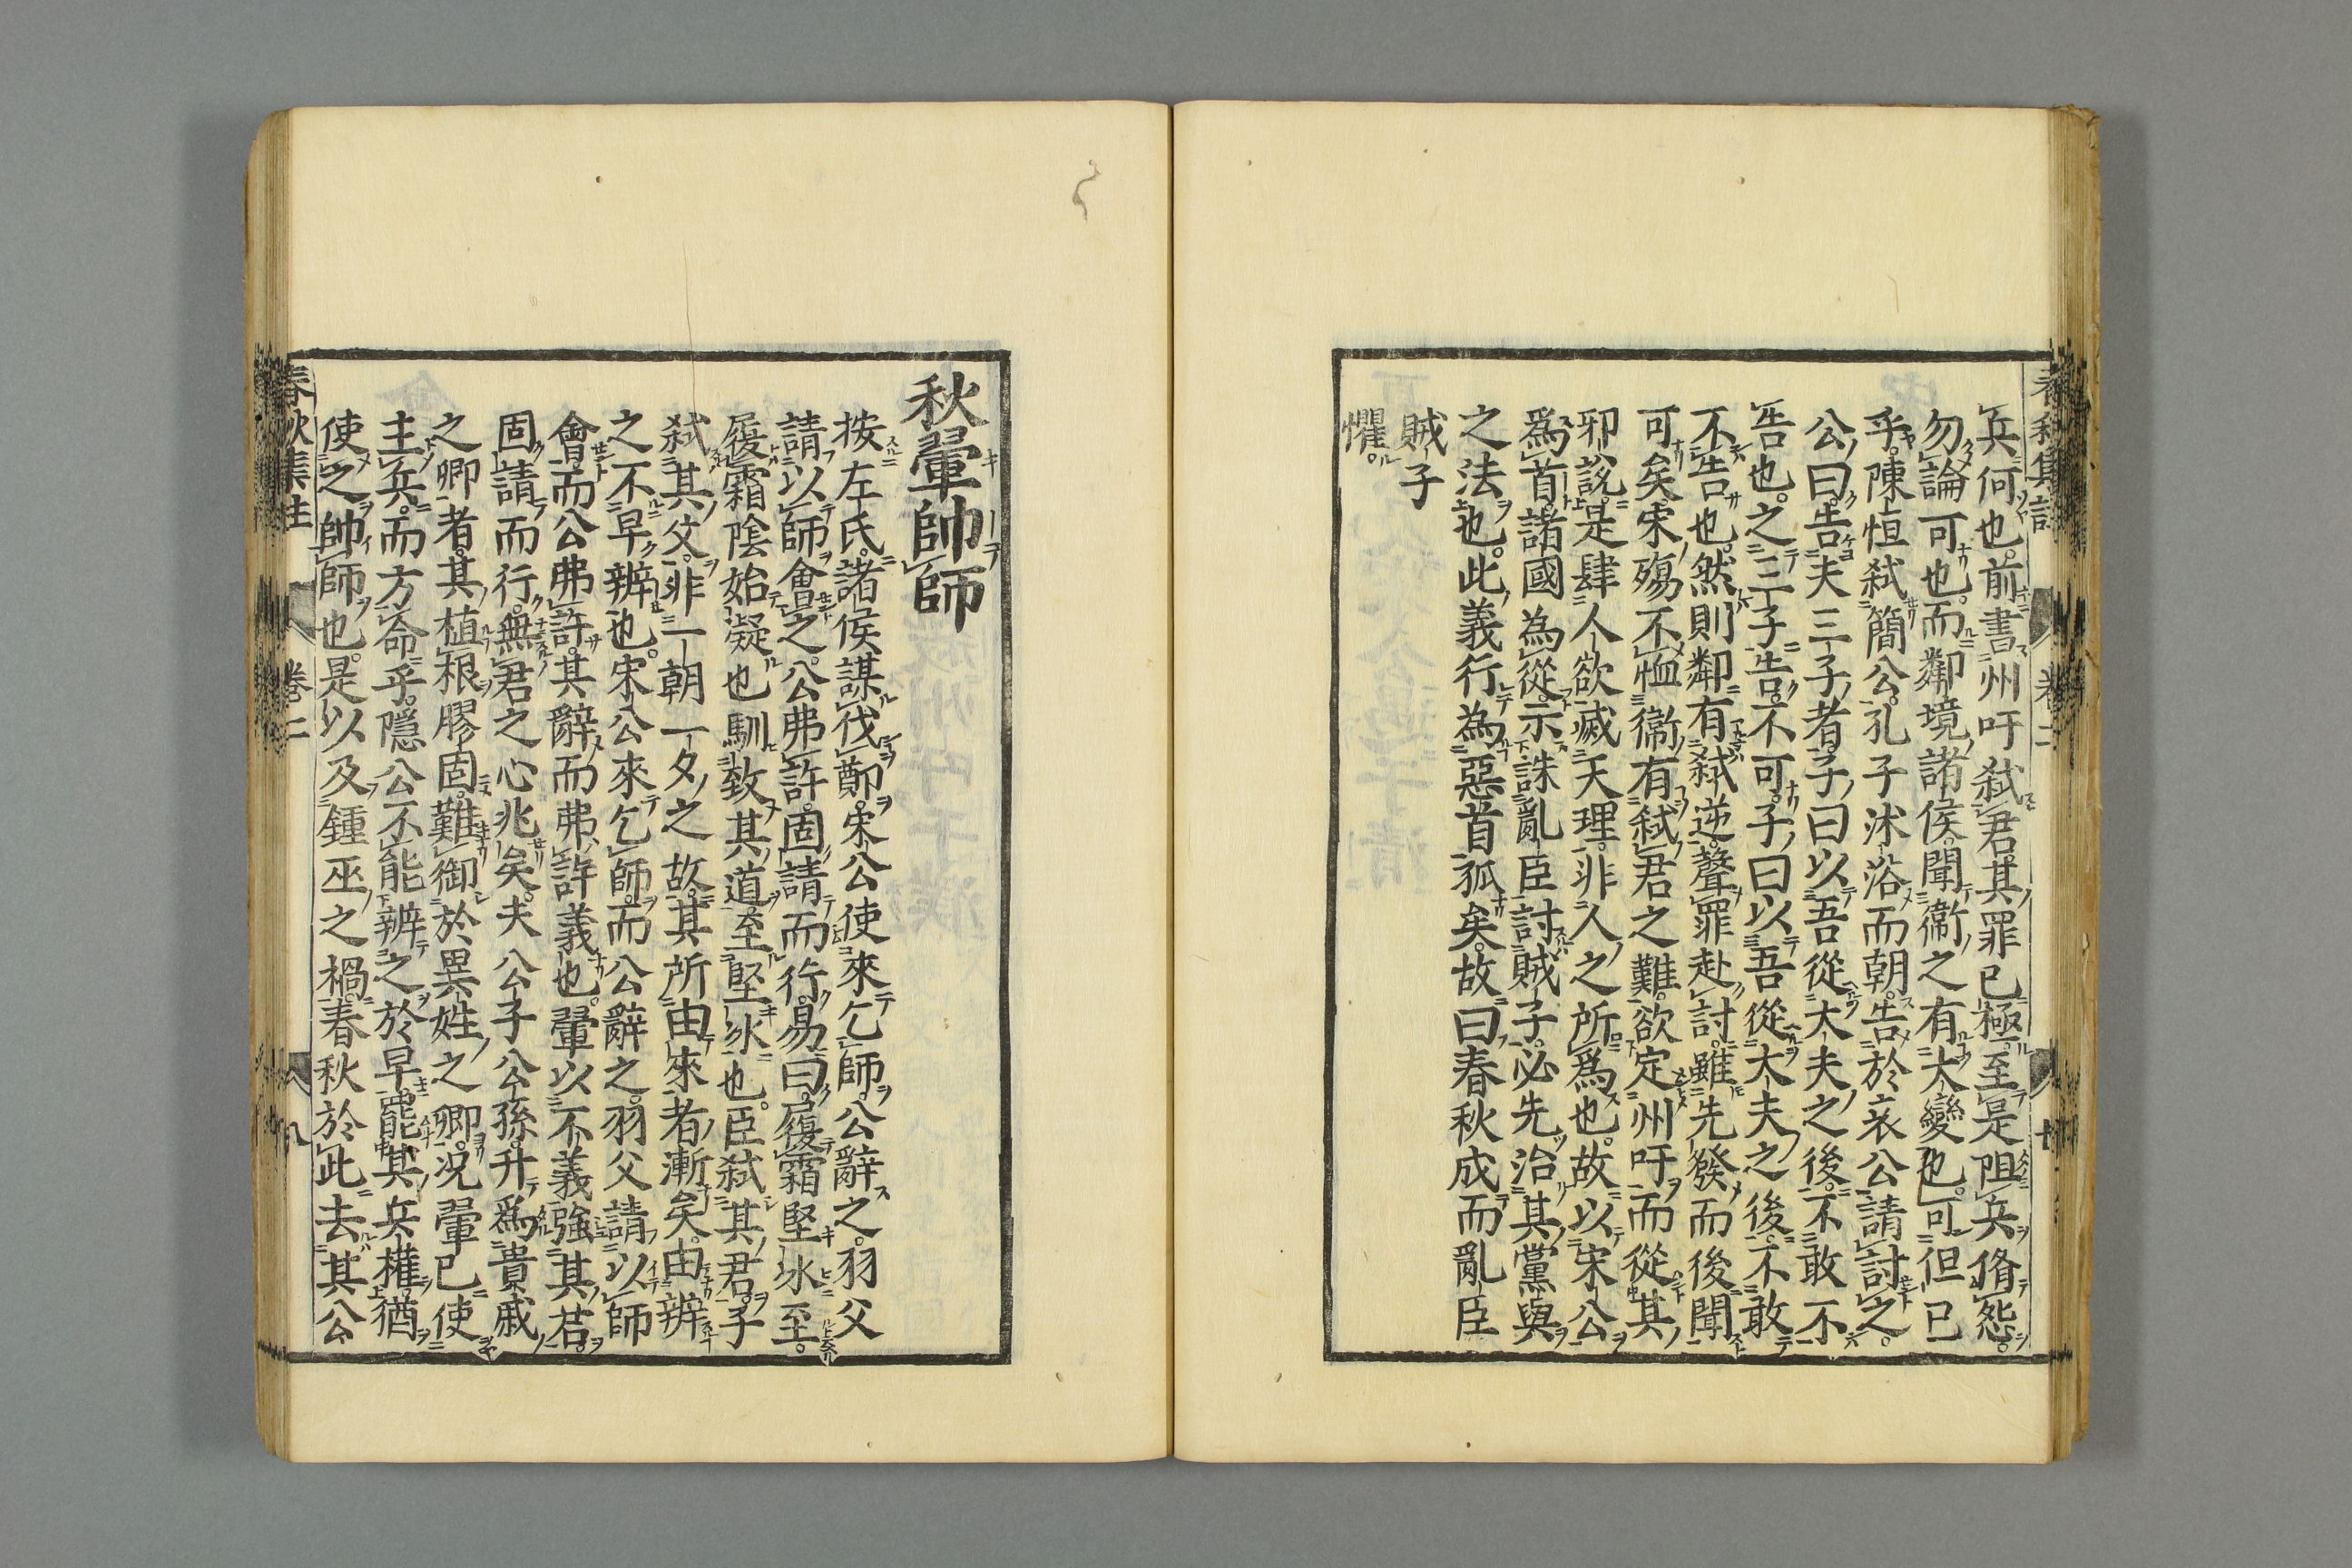 兵何也前書州吁弑君其罪已極至是阻兵脩怨
勿論可也而鄰境諸侯聞衞之有大變也可但已
乎陳恒弑簡公孔子沐浴而朝告於哀公請討之
公曰告夫三子者子曰以吾從大夫之後不敢不
告也之三子告不可子曰以吾從大夫之後不敢
不告也然則鄰有弑逆聲罪赴討雖先發而後聞
可矣宋殤不恤衞有弑君之難欲定州吁而從其
邪說是肆人欲滅天理非人之所爲也故以宋公
爲首諸國為從示誅亂臣討賊子必先治其黨與
之法也此義行為惡者孤矣故曰春秋成而亂臣
賊子
懼
秋翬帥師
按左氏諸侯謀伐鄭宋公使來乞師公辭之羽父
請以師會之公弗許固請而行易曰履霜堅冰至
履霜陰始凝也馴致其道至堅冰也臣弑其君子
弑其父非一朝一夕之故其所由來者漸矣由辨
之不早辨也宋公來乞師而公辭之羽父請以師
會而公弗許其辭而弗許義也翬以不義強其君
固請而行無君之心兆矣夫公子公孫升爲貴戚
之卿者其植根膠固難御於異姓之卿况翬已使
主兵而方命乎隱公不能辨之於早罷其兵權猶
使之帥師也是以及鍾巫之禍春秋於此去其公
春秋集註
卷二
八